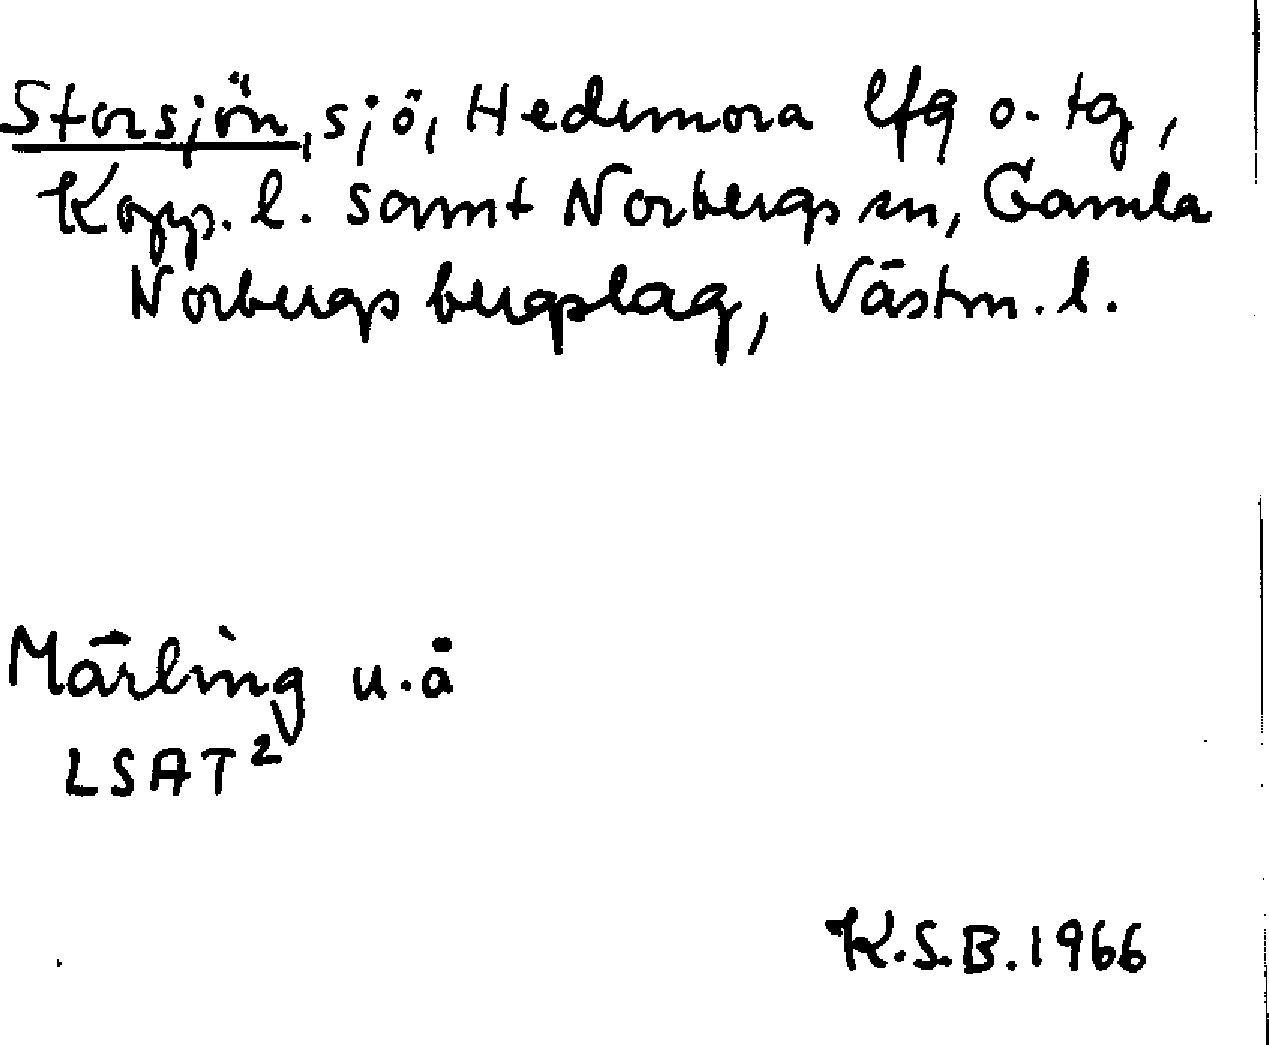 Storsjön, sjö, Hedemora lfg o. tg,
Kopp. l. samt Norbergs sn, Gamla
Norbergs bergslag, Västm. l.
Märling u.å
LSAT²
K.S.B. 1966